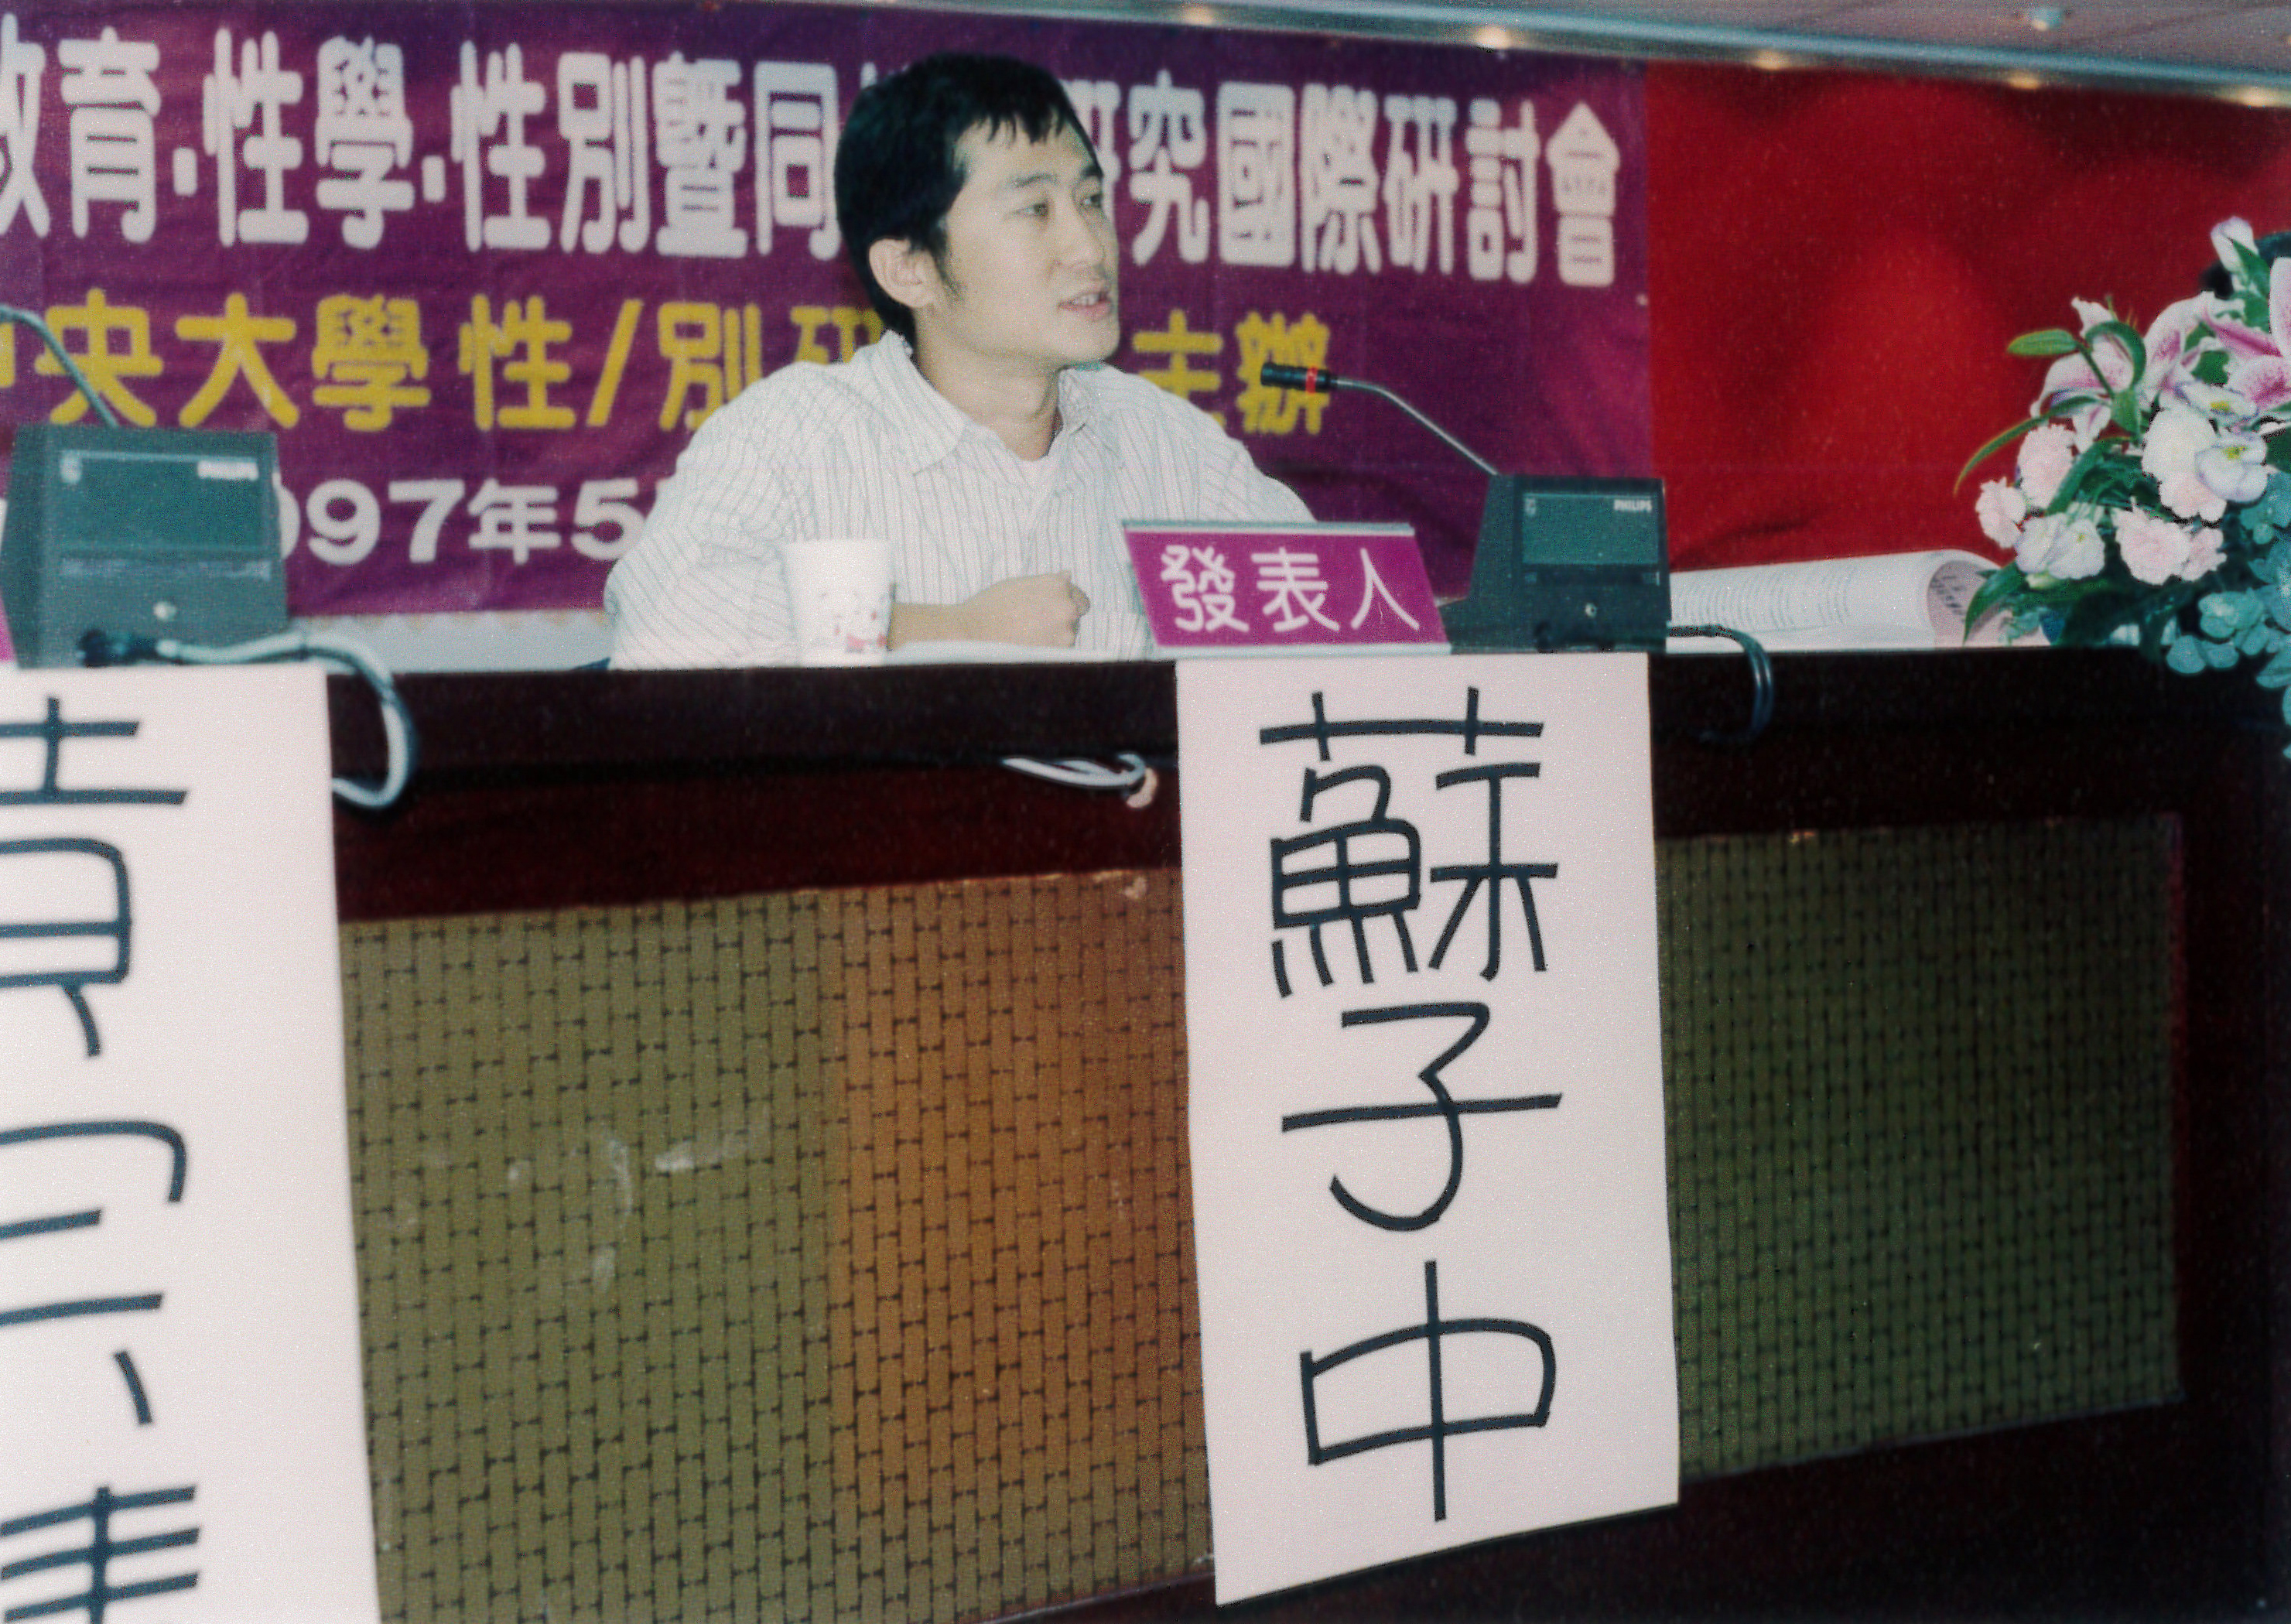 教育·性學·性別暨同 研究國際研討會
中央大學性/別研 主辦
997年5
PHILIPS
PHILIPS
發表人
蘇子中